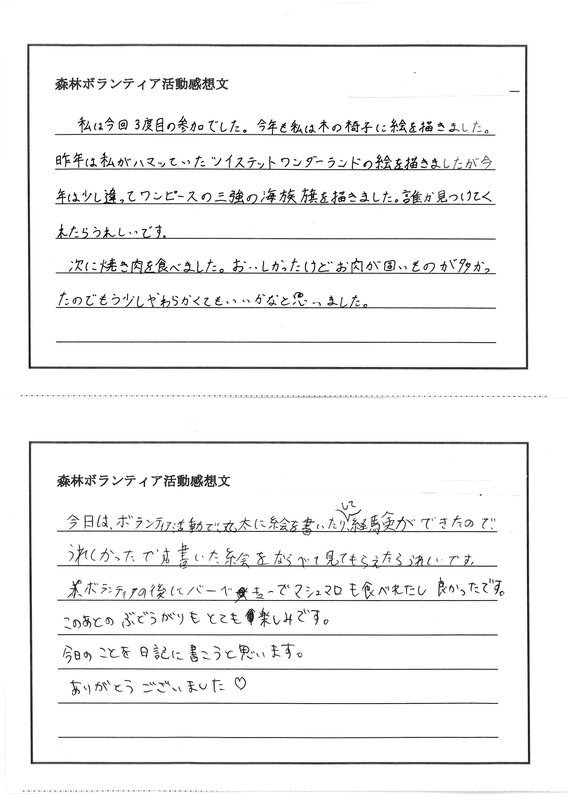 森林ボランティア活動感想文
私は今回3度目の参加でした。今年も私は木の椅子に絵を描きました。
昨年は私がハマッていたツイステットワンダーランドの絵を描きましたが今
年は少し違ってワンピースの三強の海族旗を描きました。誰か見つけてく
れたらうれしいです。
次に焼き肉を食べました。おいしかったけどお肉が固いものが多かっ
たのでもう少しやわらかくてもいいかなと思いました。
森林ボランティア活動感想文
今日は、ボランティア活動で、丸太に絵を書いたりして経験ができたので、
うれしかったです書いた絵をならべて見てもらえたらうれいです。
ボランティアの後にバーベキューでマシュマロも食べれたし良かったです。
このあとのぶどうがりもとても楽しみです。
今日のことを日記に書こうと思います。
ありがとうございました♡